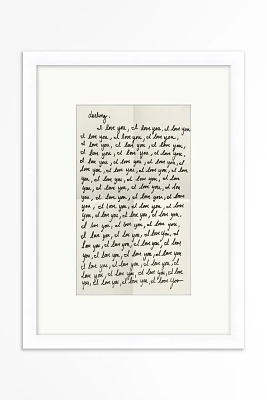 darling,
I love you, I love you, I love you,
I love you, I love you, I love you,
I love you, I love you, I love you,
I love you, I love you, I love you,
I love you, I love you, I love you, I
love you, I love you, I love you, I love
you, I love you, I love you, I love
you, I love you, I love you, I love
you, I love you, I love you, I love
you, I love you, I love you, I love
you, I love you, I love you, I love
you, I love you, I love you, I love you,
I love you, I love you, I love you, I
love you, I love you, I love you, I
love you, I love you, I love you, I love
you, I love you, I love you, I love
you, I love you, I love you, I love you,
I love you, I love you, I love you, I
love you, I love you, I love you, I love
you, I love you, I love you, I love you